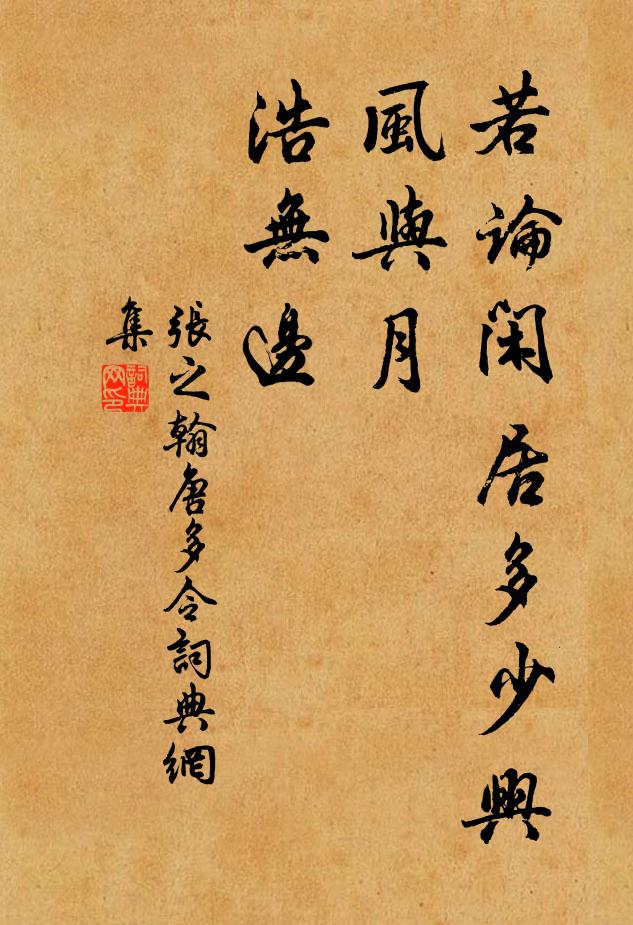 若論閑居多少興
風與月
浩無邊
張之翰唐多令詞典網
集
詞典
网印